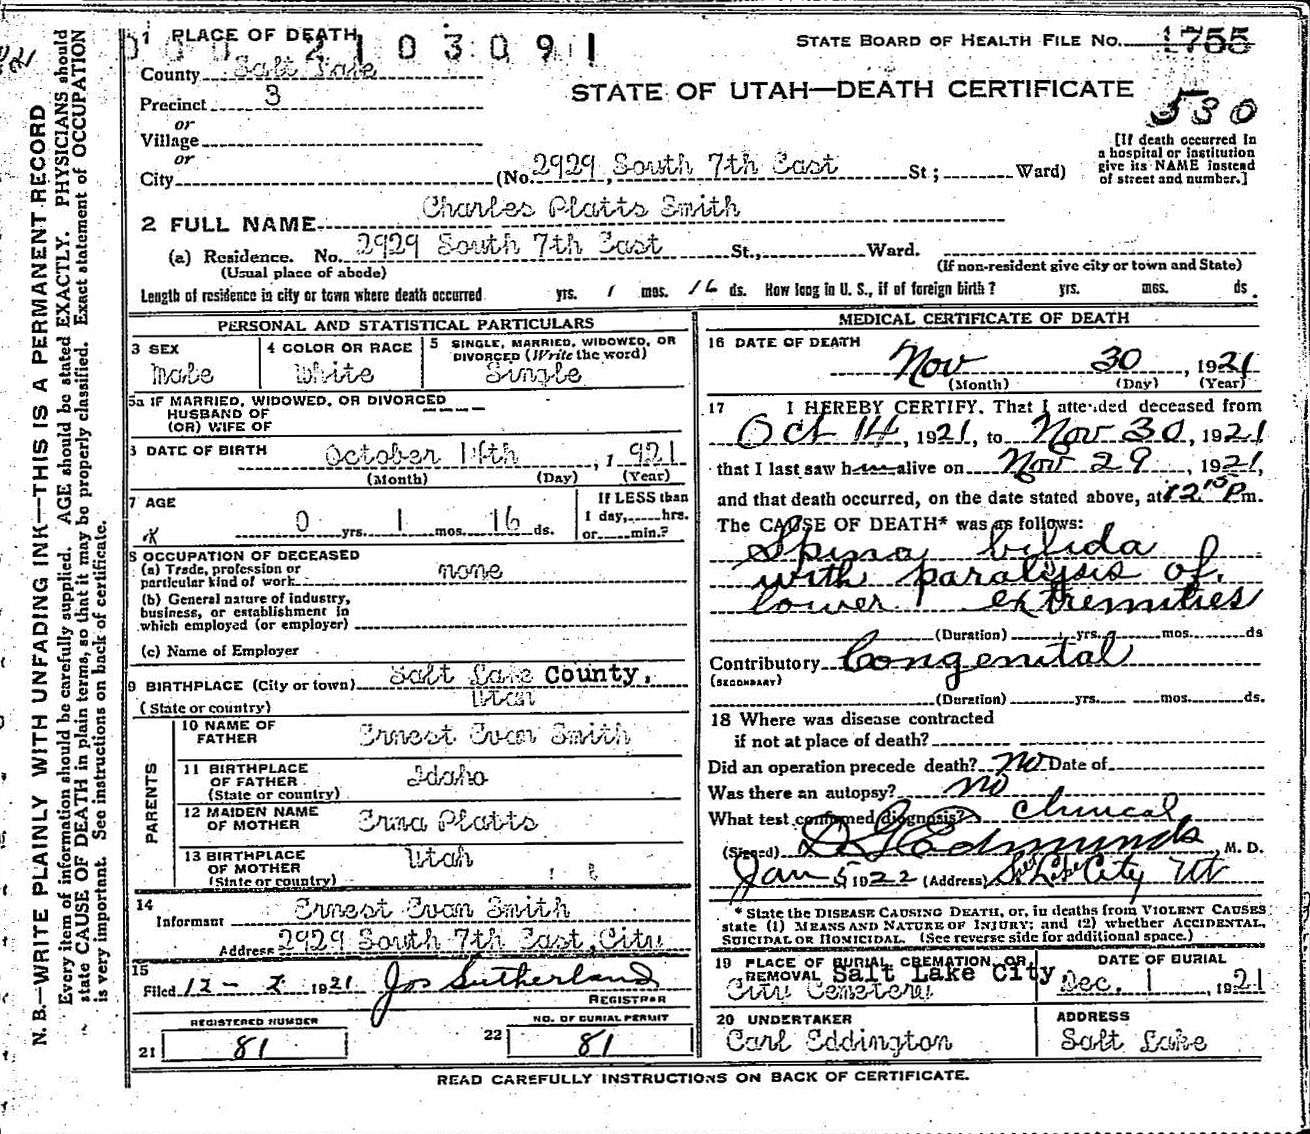 0 0 0 2 1 0 3 0 9 1
1 PLACE OF DEATH
STATE BOARD OF HEALTH FILE NO. 1755
County Salt Lake
STATE OF UTAH—DEATH CERTIFICATE
530
Precinct 3
or
Village
or
City (No. 2929, South 7th East St; Ward)
[If death occurred in
a hospital or institution
give its NAME instead
of street and number.]
2 FULL NAME Charles Platts Smith
(a) Residence. No. 2929 South 7th East St., Ward.
(Usual place of abode)
(If non-resident give city or town and State)
Length of residence in city or town where death occurred yrs. 1 mos. 16 ds. How long in U. S., if of foreign birth? yrs. mos. ds.
PERSONAL AND STATISTICAL PARTICULARS
3 SEX
Male
4 COLOR OR RACE
White
5 SINGLE, MARRIED, WIDOWED, OR
DIVORCED (Write the word)
Single
5a IF MARRIED, WIDOWED, OR DIVORCED
HUSBAND OF
(OR) WIFE OF
DATE OF BIRTH October 14th, 1921
(Month) (Day) (Year)
7 AGE
0 yrs. 1 mos. 16 ds.
If LESS than
1 day, hrs.
or min.?
8 OCCUPATION OF DECEASED
(a) Trade, profession or
particular kind of work none
(b) General nature of industry,
business, or establishment in
which employed (or employer)
(c) Name of Employer
9 BIRTHPLACE (City or town) Salt Lake County,
(State or country) Utah
PARENTS
10 NAME OF
FATHER Ernest Evan Smith
11 BIRTHPLACE
OF FATHER Idaho
(State or country)
12 MAIDEN NAME
OF MOTHER Erma Platts
13 BIRTHPLACE
OF MOTHER Utah
(State or country)
14
Informant Ernest Evan Smith
Address 2929 South 7th East, City
15
Filed 12-2 1921 Jos Sutherland
REGISTRAR
REGISTERED NUMBER
21 81
NO. OF BURIAL PERMIT
22 81
MEDICAL CERTIFICATE OF DEATH
16 DATE OF DEATH
Nov 30, 1921
(Month) (Day) (Year)
17 I HEREBY CERTIFY, That I attended deceased from
Oct 14, 1921, to Nov 30, 1921
that I last saw h alive on Nov 29, 1921,
and that death occurred, on the date stated above, at 12 15 P m.
The CAUSE OF DEATH* was as follows:
Spina bifida
with paralysis of
lower extremities
(Duration) yrs. mos. ds
Contributory Congenital
(SECONDARY)
(Duration) yrs. mos. ds.
18 Where was disease contracted
if not at place of death?
Did an operation precede death? No Date of
Was there an autopsy? no
What test confirmed diagnosis? Clinical
(Signed) D G Edmunds, M. D.
Jan 5 1922 (Address) Salt Lake City Ut
* State the DISEASE CAUSING DEATH, or, in deaths from VIOLENT CAUSES
state (1) MEANS AND NATURE OF INJURY; and (2) whether ACCIDENTAL,
SUICIDAL OR HOMICIDAL. (See reverse side for additional space.)
19 PLACE OF BURIAL, CREMATION, OR
REMOVAL Salt Lake City
City Cemetery
DATE OF BURIAL
Dec. 1, 1921
20 UNDERTAKER
Carl Eddington
ADDRESS
Salt Lake
READ CAREFULLY INSTRUCTIONS ON BACK OF CERTIFICATE.
N. B.—WRITE PLAINLY WITH UNFADING INK—THIS IS A PERMANENT RECORD
Every item of information should be carefully supplied. AGE should be stated EXACTLY. PHYSICIANS should
state CAUSE OF DEATH in plain terms, so that it may be properly classified. Exact statement of OCCUPATION
is very important. See instructions on back of certificate.